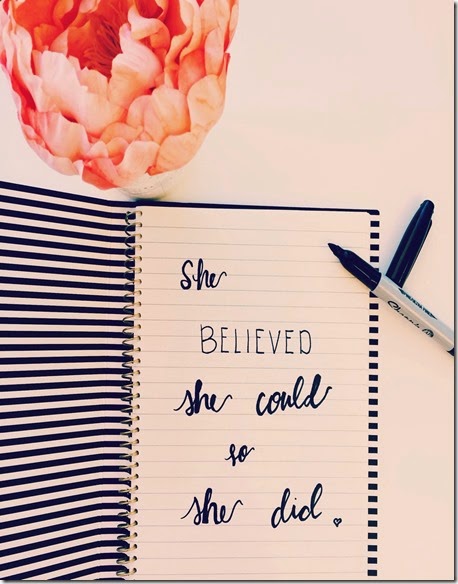 She
BELIEVED
she could
so
she did.
Sharpie